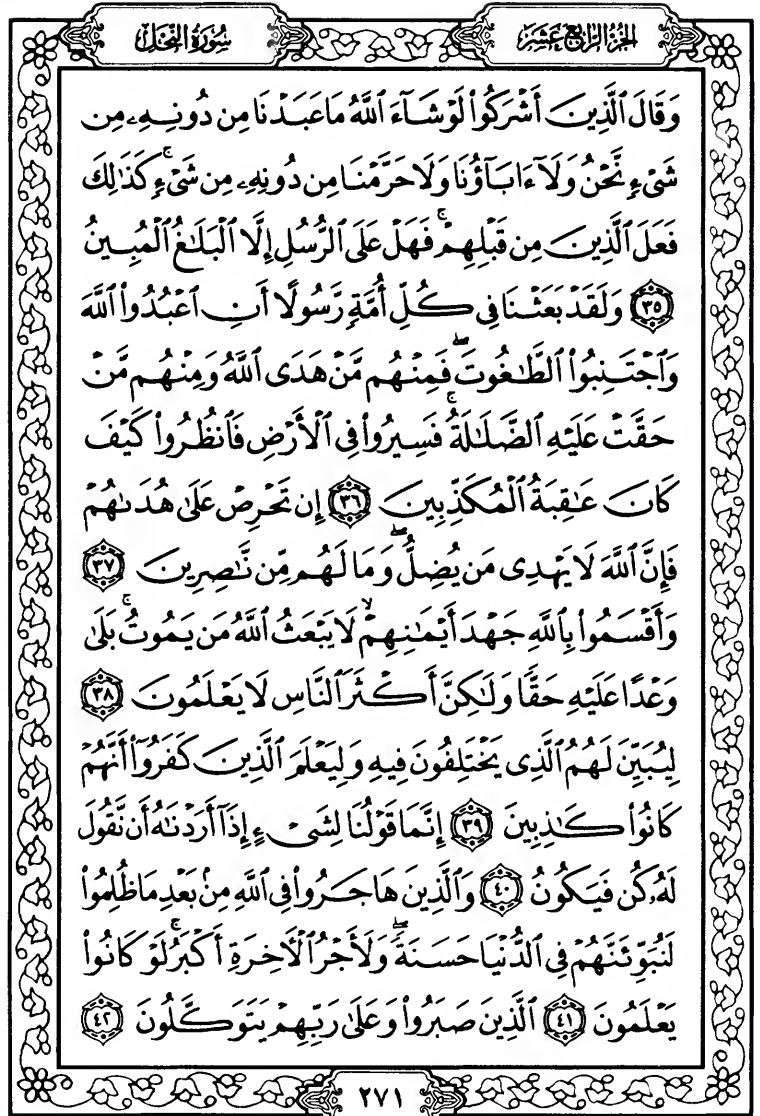 الجزء الرابع عشر
سورة النحل
وَقَالَ ٱلَّذِينَ أَشْرَكُوا۟ لَوْ شَآءَ ٱللَّهُ مَا عَبَدْنَا مِن دُونِهِۦ مِن
شَىْءٍ نَّحْنُ وَلَآ ءَابَآؤُنَا وَلَا حَرَّمْنَا مِن دُونِهِۦ مِن شَىْءٍ ۚ كَذَٰلِكَ
فَعَلَ ٱلَّذِينَ مِن قَبْلِهِمْ ۚ فَهَلْ عَلَى ٱلرُّسُلِ إِلَّا ٱلْبَلَـٰغُ ٱلْمُبِينُ
٣٥ وَلَقَدْ بَعَثْنَا فِى كُلِّ أُمَّةٍ رَّسُولًا أَنِ ٱعْبُدُوا۟ ٱللَّهَ
وَٱجْتَنِبُوا۟ ٱلطَّـٰغُوتَ ۖ فَمِنْهُم مَّنْ هَدَى ٱللَّهُ وَمِنْهُم مَّنْ
حَقَّتْ عَلَيْهِ ٱلضَّلَـٰلَةُ ۚ فَسِيرُوا۟ فِى ٱلْأَرْضِ فَٱنظُرُوا۟ كَيْفَ
كَانَ عَـٰقِبَةُ ٱلْمُكَذِّبِينَ ٣٦ إِن تَحْرِصْ عَلَىٰ هُدَىٰهُمْ
فَإِنَّ ٱللَّهَ لَا يَهْدِى مَن يُضِلُّ ۖ وَمَا لَهُم مِّن نَّـٰصِرِينَ ٣٧
وَأَقْسَمُوا۟ بِٱللَّهِ جَهْدَ أَيْمَـٰنِهِمْ ۙ لَا يَبْعَثُ ٱللَّهُ مَن يَمُوتُ ۚ بَلَىٰ
وَعْدًا عَلَيْهِ حَقًّا وَلَـٰكِنَّ أَكْثَرَ ٱلنَّاسِ لَا يَعْلَمُونَ ٣٨
لِيُبَيِّنَ لَهُمُ ٱلَّذِى يَخْتَلِفُونَ فِيهِ وَلِيَعْلَمَ ٱلَّذِينَ كَفَرُوٓا۟ أَنَّهُمْ
كَانُوا۟ كَـٰذِبِينَ ٣٩ إِنَّمَا قَوْلُنَا لِشَىْءٍ إِذَآ أَرَدْنَـٰهُ أَن نَّقُولَ
لَهُۥ كُن فَيَكُونُ ٤٠ وَٱلَّذِينَ هَاجَرُوا۟ فِى ٱللَّهِ مِنۢ بَعْدِ مَا ظُلِمُوا۟
لَنُبَوِّئَنَّهُمْ فِى ٱلدُّنْيَا حَسَنَةً ۖ وَلَأَجْرُ ٱلْـَٔاخِرَةِ أَكْبَرُ ۚ لَوْ كَانُوا۟
يَعْلَمُونَ ٤١ ٱلَّذِينَ صَبَرُوا۟ وَعَلَىٰ رَبِّهِمْ يَتَوَكَّلُونَ ٤٢
٢٧١